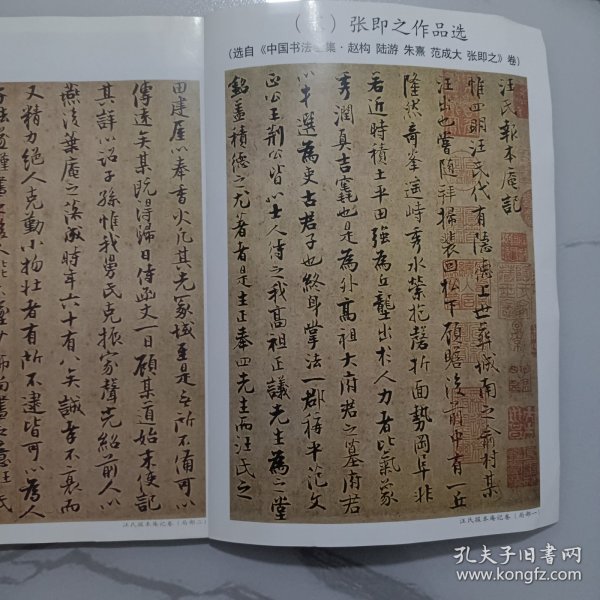 张即之作品选
(选自《中国书法全集·赵构 陆游 朱熹 范成大 张即之》卷)
汪氏報本庵記
惟四明汪氏代有隱德上世葬城南之俞村某
汪出也嘗隨拜掃裴回松下顧瞻後前中有一丘
隆然奇峯遥峙秀水縈抱磬折面勢岡阜非
若近時積土平田強為丘壟出於人力者比氣象
秀潤真吉壤也是為外高祖大府君之墓府君
以才選為吏古君子也終身掌法一郡稱平范文
正公王荆公皆以士人待之我高祖正議先生為之堂
銘盖積德之尤著者是生正奉四先生而汪氏之
汪氏报本庵记卷(局部一)
田建屋以奉香火凡其先冢域至是無所不備可以
傳遠矣某既得歸日侍函丈一日顧某道始末使記
其詳以詔子孫惟我舅氏克振家聲光紹前人以
燕沒葉庵之蓋時年六十有八矣誠孝不衰而
又精力絕人克勤小物壮者有所不逮皆可以為人
汪氏报本庵记卷(局部二)
孔夫子旧书网
www.kongfz.com